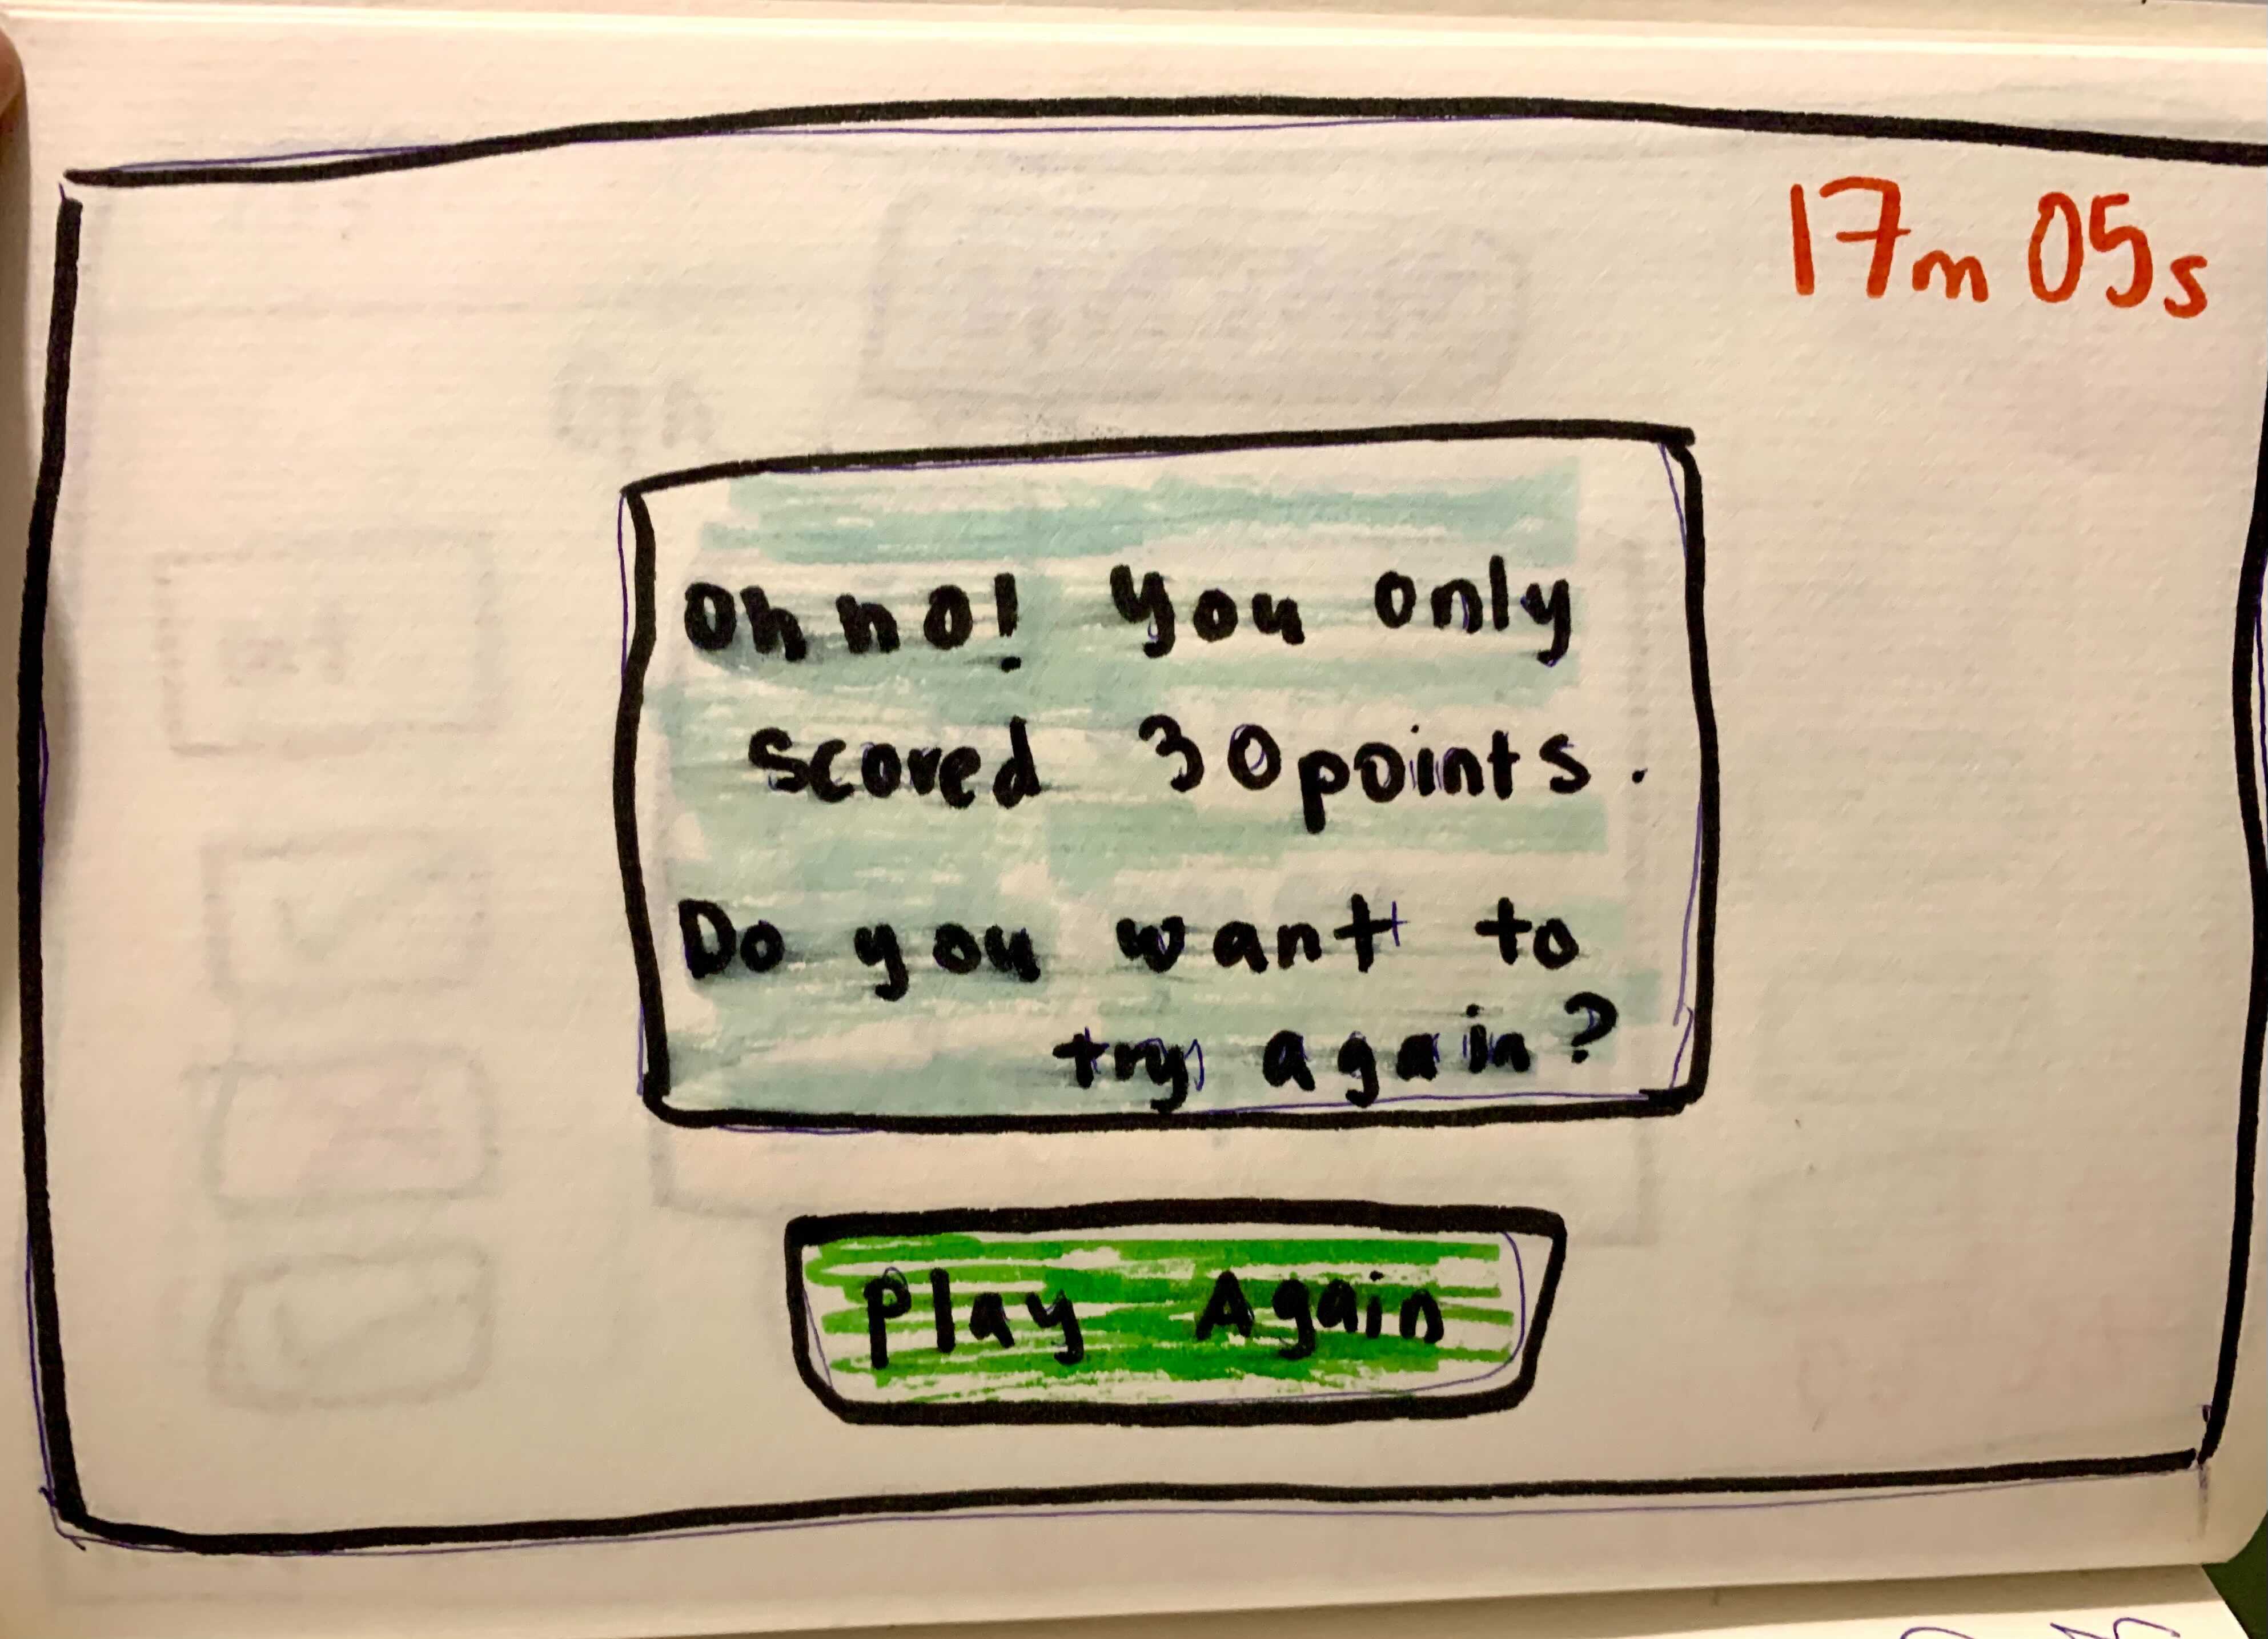 17m 05s
Oh no! You only
scored 30 points.
Do you want to
try again?
Play Again